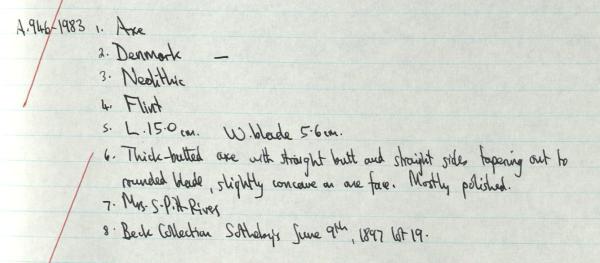 A.946-1983 1. Axe
2. Denmark —
3. Neolithic
4. Flint
5. L.15.0 cm. W.blade 5.6cm.
6. Thick-butted axe with straight butt and straight sides tapering out to
rounded blade, slightly concave on one face. Mostly polished.
7. Mrs. S. Pitt-Rivers
8. Beck Collection Sotheby's June 9th, 1897 lot 19.